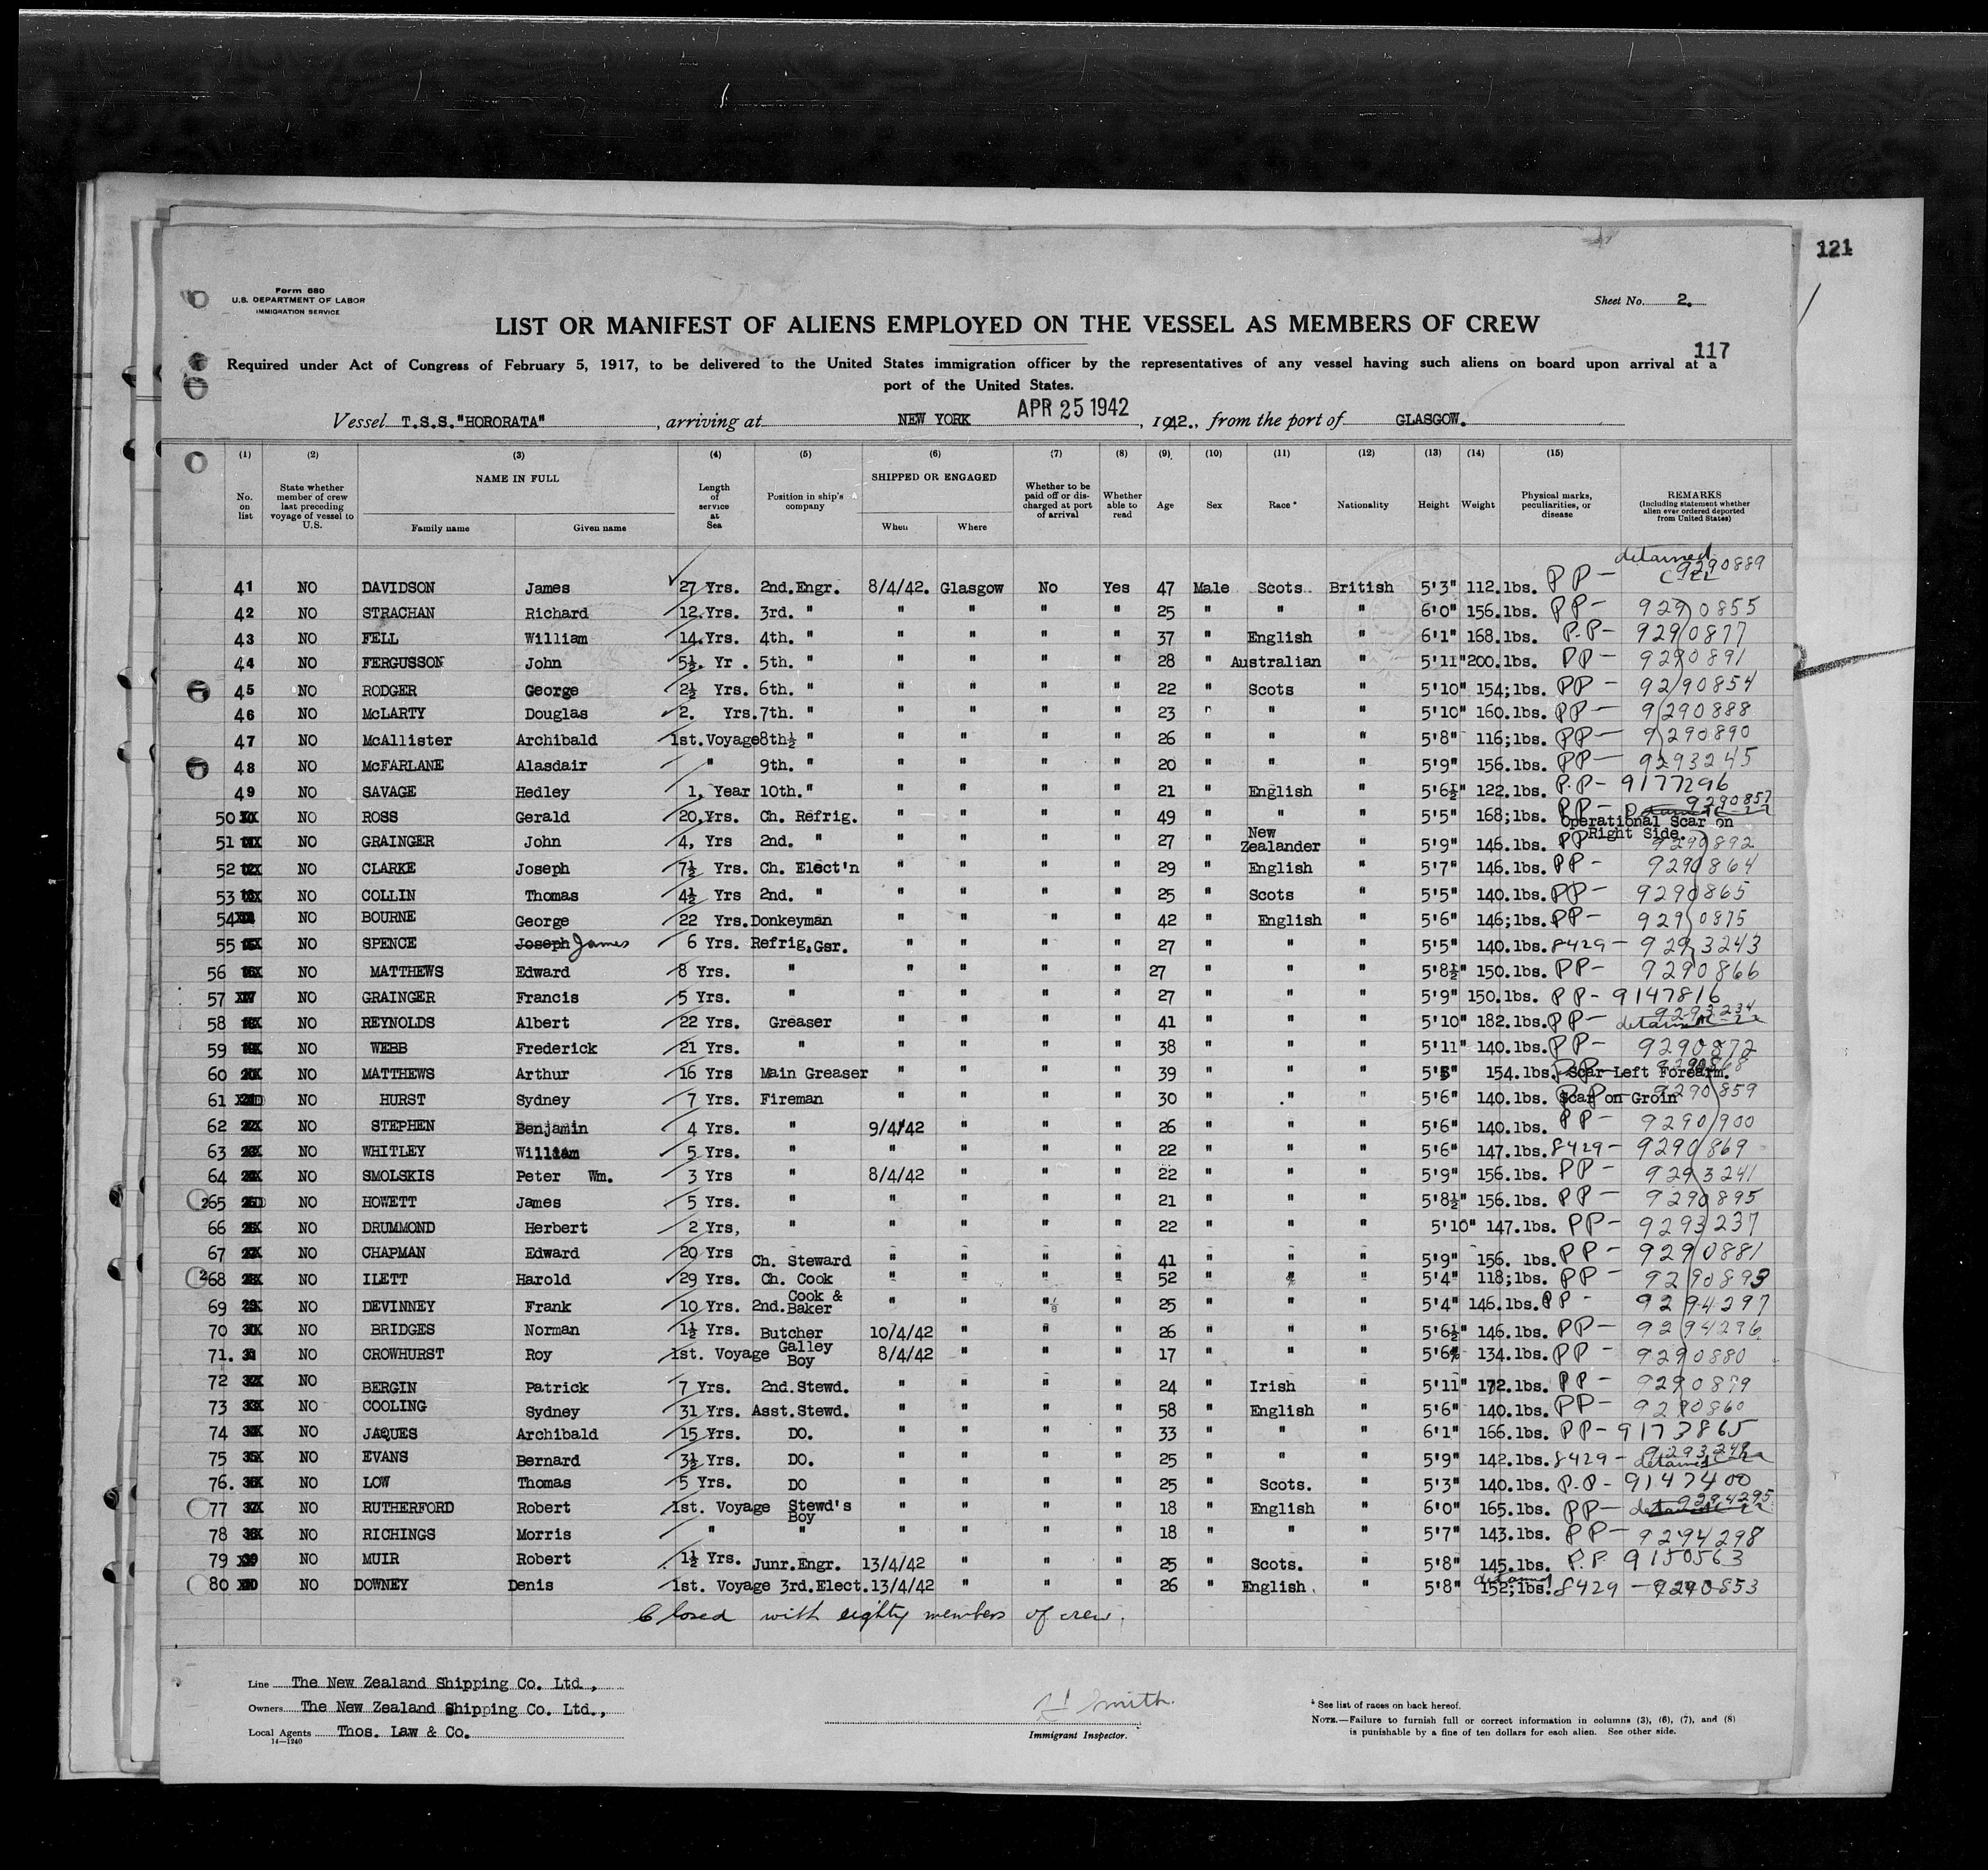 121
Form 680
U.S. DEPARTMENT OF LABOR
IMMIGRATION SERVICE
Sheet No. 2.
LIST OR MANIFEST OF ALIENS EMPLOYED ON THE VESSEL AS MEMBERS OF CREW
117
Required under Act of Congress of February 5, 1917, to be delivered to the United States immigration officer by the representatives of any vessel having such aliens on board upon arrival at a
port of the United States.
Vessel T.S.S."HORORATA", arriving at NEW YORK APR 25 1942, 1942., from the port of GLASGOW.
(1) (2) (3) (4) (5) (6) (7) (8) (9) (10) (11) (12) (13) (14) (15)
No. on list State whether member of crew last preceding voyage of vessel to U.S. NAME IN FULL Family name Given name Length of service at Sea Position in ship's company SHIPPED OR ENGAGED When Where Whether to be paid off or discharged at port of arrival Whether able to read Age Sex Race* Nationality Height Weight Physical marks, peculiarities, or disease REMARKS (Including statement whether alien ever ordered deported from United States)
41 NO DAVIDSON James 27 Yrs. 2nd.Engr. 8/4/42. Glasgow No Yes 47 Male Scots British 5'3" 112.lbs. PP - detained 9290889
42 NO STRACHAN Richard 12.Yrs. 3rd. " " " " " 25 " " " 6'0" 156.lbs. PP - 9290855
43 NO FELL William 14.Yrs. 4th. " " " " " 37 " English " 6'1" 168.lbs. P.P - 9290877
44 NO FERGUSSON John 5½. Yr . 5th. " " " " " 28 " Australian " 5'11" 200.lbs. PP - 9290891
45 NO RODGER George 2½ Yrs. 6th. " " " " " 22 " Scots " 5'10" 154;lbs. PP - 9290854
46 NO McLARTY Douglas 2. Yrs. 7th. " " " " " 23 " " " 5'10" 160.lbs. PP - 9290888
47 NO McAllister Archibald 1st.Voyage 8th½ " " " " " 26 " " " 5'8" 116;lbs. PP - 9290890
48 NO McFARLANE Alasdair " 9th. " " " " " 20 " " " 5'9" 156.lbs. PP - 9293245
49 NO SAVAGE Hedley 1, Year 10th." " " " " 21 " English " 5'6½" 122.lbs. P.P - 9177296
50 NO ROSS Gerald 20.Yrs. Ch. Refrig. " " " " 49 " " " 5'5" 168;lbs. PP - 9290857 Operational Scar on
Right Side.
51 NO GRAINGER John 4, Yrs 2nd. " " " " " 27 " New Zealander " 5'9" 146.lbs. PP 9290892
52 NO CLARKE Joseph 7½ Yrs. Ch. Elect'n " " " " 29 " English " 5'7" 146.lbs. PP - 9290864
53 NO COLLIN Thomas 4½ Yrs 2nd. " " " " " 25 " Scots " 5'5" 140.lbs. PP - 9290865
54 NO BOURNE George 22 Yrs. Donkeyman " " " " 42 " English " 5'6" 146;lbs. PP - 9290875
55 NO SPENCE Joseph James 6 Yrs. Refrig.Gsr. " " " " 27 " " " 5'5" 140.lbs. 8429 - 9293243
56 NO MATTHEWS Edward 8 Yrs. " " " " " 27 " " " 5'8½" 150.lbs. PP - 9290866
57 NO GRAINGER Francis 5 Yrs. " " " " " 27 " " " 5'9" 150.lbs. PP - 9147816
58 NO REYNOLDS Albert 22 Yrs. Greaser " " " " 41 " " " 5'10" 182.lbs. PP - 9293234 detained
59 NO WEBB Frederick 21 Yrs. " " " " " 38 " " " 5'11" 140.lbs. PP - 9290872
60 NO MATTHEWS Arthur 16 Yrs Main Greaser " " " " 39 " " " 154.lbs. Scar Left Forearm.
61 NO HURST Sydney 7 Yrs. Fireman " " " " 30 " " " 5'6" 140.lbs. Scar on Groin 9290859
62 NO STEPHEN Benjamin 4 Yrs. " 9/4/42 " " " 26 " " " 5'6" 140.lbs. PP - 9290900
63 NO WHITLEY William 5 Yrs. " " " " " 22 " " " 5'6" 147.lbs. 8429 - 9290869
64 NO SMOLSKIS Peter Wm. 3 Yrs " 8/4/42 " " " 22 " " " 5'9" 156.lbs. PP - 9293241
65 NO HOWETT James 5 Yrs. " " " " " 21 " " " 5'8½" 156.lbs. PP - 9290895
66 NO DRUMMOND Herbert 2 Yrs, " " " " " 22 " " " 5'10" 147.lbs. PP - 9293237
67 NO CHAPMAN Edward 20 Yrs Ch. Steward " " " " 41 " " " 5'9" 156. lbs. PP - 9290881
68 NO ILETT Harold 29 Yrs. Ch. Cook " " " " 52 " " " 5'4" 118;lbs. PP - 9290893
69 NO DEVINNEY Frank 10 Yrs. 2nd. Cook & Baker " " " " 25 " " " 5'4" 146.lbs. PP - 9294297
70 NO BRIDGES Norman 1½ Yrs. Butcher 10/4/42 " " " 26 " " " 5'6½" 146.lbs. PP - 9294296
71. NO CROWHURST Roy 1st. Voyage Galley Boy 8/4/42 " " " 17 " " " 5'6 134.lbs. PP - 9290880
72 NO BERGIN Patrick 7 Yrs. 2nd.Stewd. " " " " 24 " Irish " 5'11" 172.lbs. PP - 9290879
73 NO COOLING Sydney 31 Yrs. Asst.Stewd. " " " " 58 " English " 5'6" 140.lbs. PP - 9290860
74 NO JAQUES Archibald 15 Yrs. DO. " " " " 33 " " " 6'1" 166.lbs. PP - 9173865
75 NO EVANS Bernard 3½ Yrs. DO. " " " " 25 " " " 5'9" 142.lbs. 8429 - detained
76. NO LOW Thomas 5 Yrs. DO " " " " 25 " Scots. " 5'3" 140.lbs. P.P - 9147400
77 NO RUTHERFORD Robert 1st. Voyage Stewd's Boy " " " " 18 " English " 6'0" 165.lbs. PP - 9294295
78 NO RICHINGS Morris " " " " " " 18 " " " 5'7" 143.lbs. PP - 9294298
79 NO MUIR Robert 1½ Yrs. Junr.Engr. 13/4/42 " " " 25 " Scots. " 5'8" 145.lbs. P.P 9150563
80 NO DOWNEY Denis 1st. Voyage 3rd.Elect. 13/4/42 " " " 26 " English. " 5'8" 152;lbs. detained 8429 - 9290853
Closed with eighty members of crew.
Line The New Zealand Shipping Co. Ltd.,
Owners The New Zealand Shipping Co. Ltd.,
Local Agents Thos. Law & Co.
14—1240
Smith
Immigrant Inspector.
* See list of races on back hereof.
NOTE.—Failure to furnish full or correct information in columns (3), (6), (7), and (8)
is punishable by a fine of ten dollars for each alien. See other side.